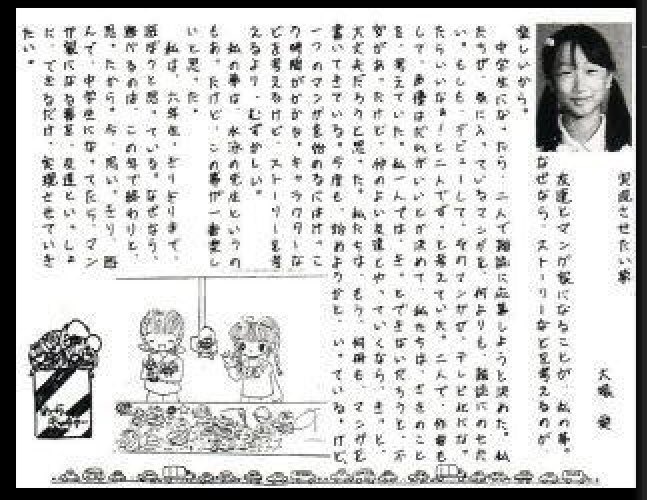 実現させたい夢
大塚 愛
友達とマンガ家になることが、私の夢。
なぜなら、ストーリーなどを考えるのが、
楽しいから。
中学生になったら、二人で雑誌に応募しようと決めた。私
たちが、気に入っているマンガを、何よりも、雑誌にのせた
い。もしも、デビューして、そのマンガが、テレビ化になっ
たらいいなぁ！と二人でずっと考えていた。二人で、作曲も
して、声優はだれがいいとか決めて、私たちは、さきのこと
を、考えていた。私一人では、きっとできないだろうと、不
安があった。だけど、仲のよい友達とやっていくなら、きっと、
大丈夫だろうと思った。私たちは、もう、何冊も、マンガを
書いてきている。今度も、始めようかと、いっている。けど、
一つのマンガを始めるのにはけっこ
う時間がかかる。キャラクターな
どを考えるけど、ストーリーを考
えるより、むずかしい。
私の夢は、水泳の先生というの
もあったけど、この夢が一番楽し
いと思った。
私は、六年生、ぎりぎりまで、
頑ばろうと思っている。なぜなら、
遊べるのは、この年で終わりと、
思ったから。今、思いっきり、遊
んで、中学生になってたら、マン
ガ家になる夢を、友達といっしょ
に、できるだけ、実現させていき
たい。